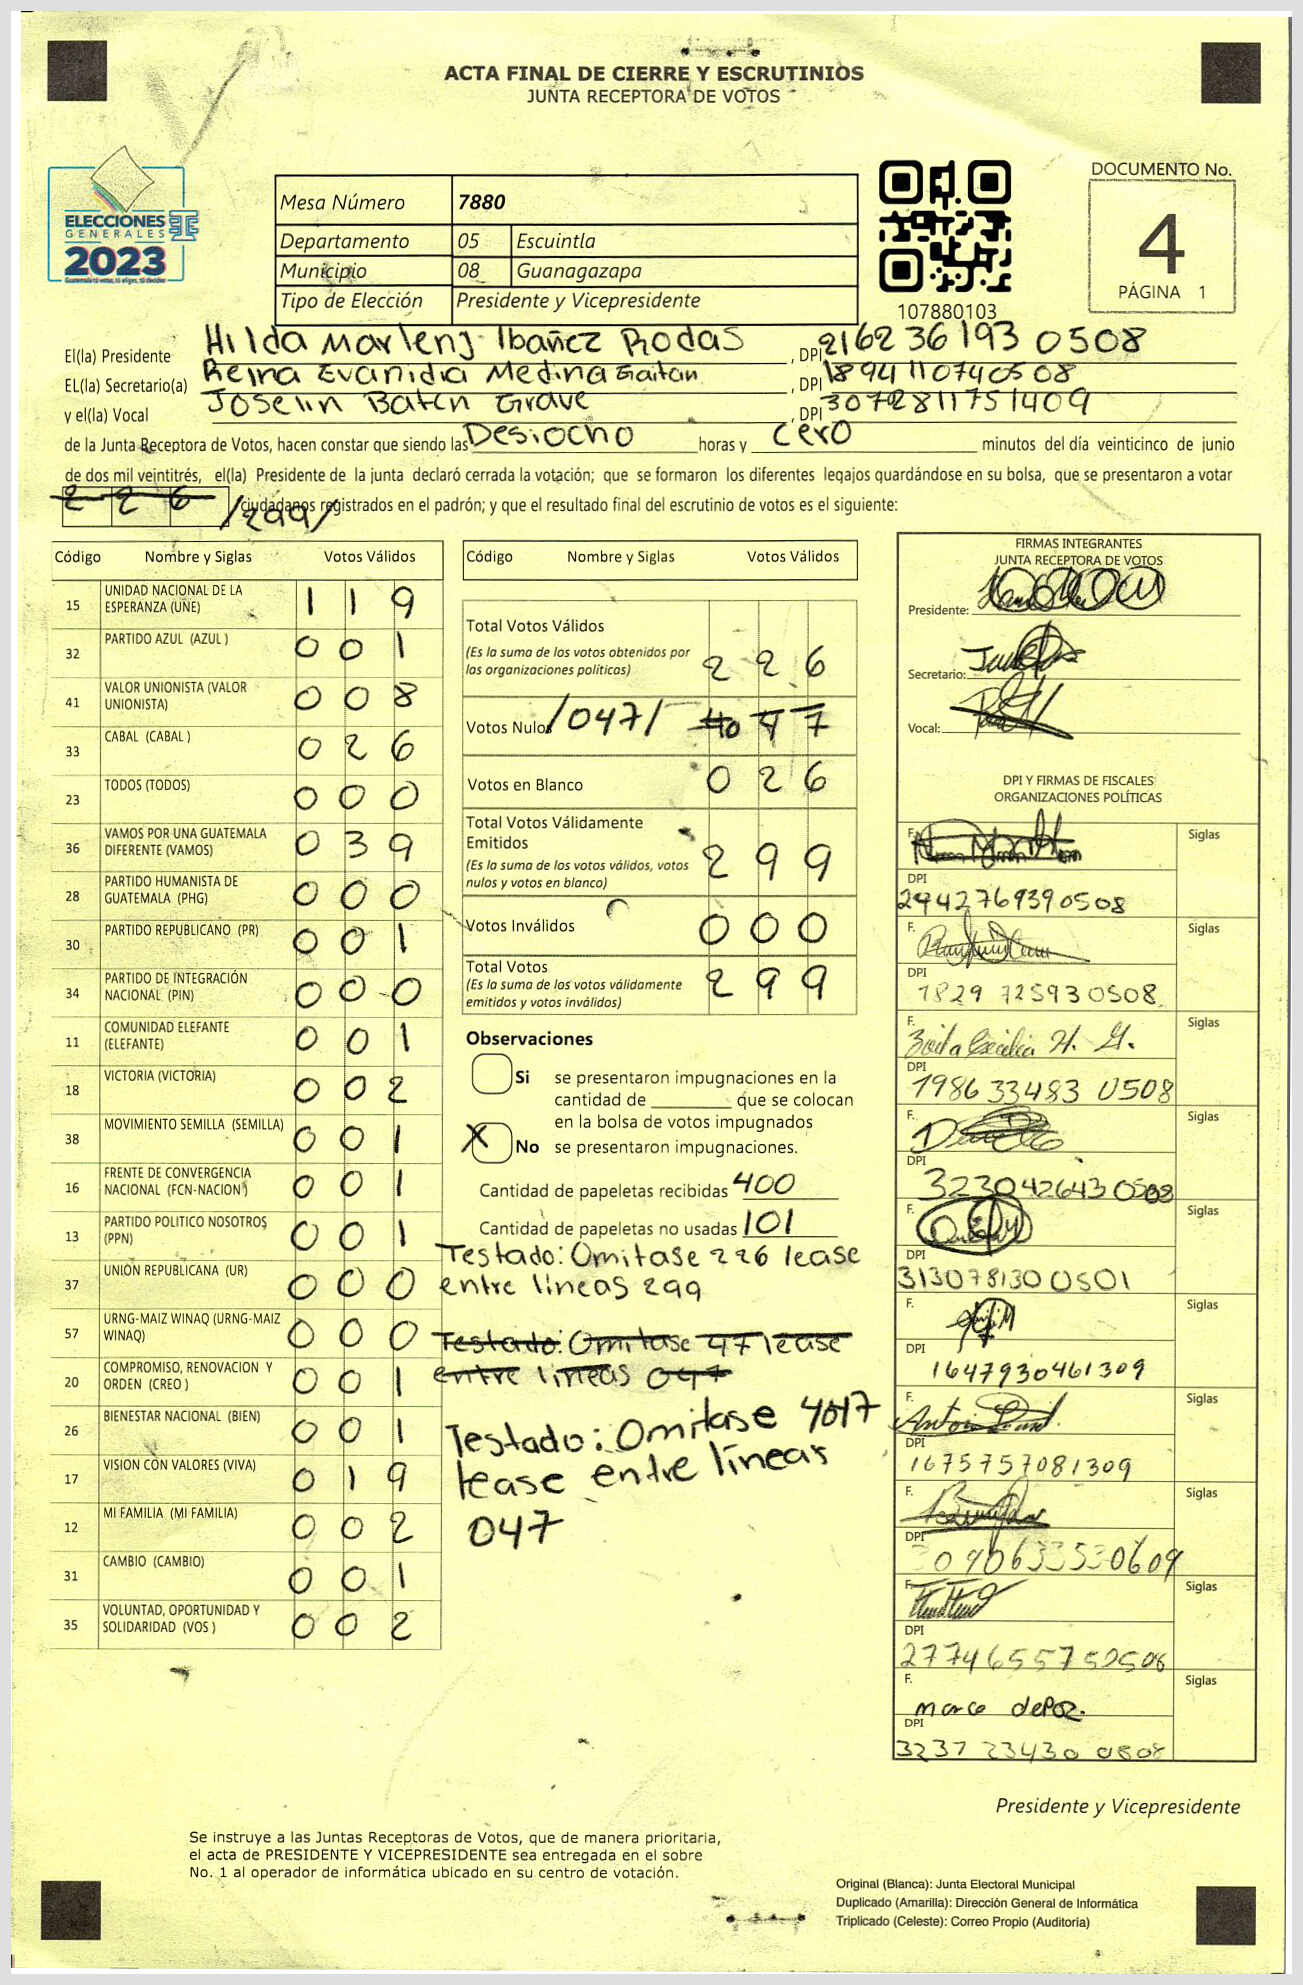 ACTA FINAL DE CIERRE Y ESCRUTINIOS
JUNTA RECEPTORA DE VOTOS
ELECCIONES
GENERALES
2023
Mesa Número 7880
Departamento 05 Escuintla
Municipio 08 Guanagazapa
Tipo de Elección Presidente y Vicepresidente
107880103
DOCUMENTO No.
4
PÁGINA 1
El(la) Presidente Hilda Marleny Ibañez Rodas , DPI 2162 36193 0508
EL(la) Secretario(a) Reina Evanidia Medina Gaitan , DPI 1894110740508
y el(la) Vocal Joselin Baten Grave , DPI 3072811751409
de la Junta Receptora de Votos, hacen constar que siendo las Desiocho horas y cero minutos del día veinticinco de junio
de dos mil veintitrés, el(la) Presidente de la junta declaró cerrada la votación; que se formaron los diferentes legajos guardándose en su bolsa, que se presentaron a votar
226 /299/ ciudadanos registrados en el padrón; y que el resultado final del escrutinio de votos es el siguiente:
Código Nombre y Siglas Votos Válidos
15 UNIDAD NACIONAL DE LA ESPERANZA (UNE) 119
32 PARTIDO AZUL (AZUL ) 001
41 VALOR UNIONISTA (VALOR UNIONISTA) 008
33 CABAL (CABAL ) 026
23 TODOS (TODOS) 000
36 VAMOS POR UNA GUATEMALA DIFERENTE (VAMOS) 039
28 PARTIDO HUMANISTA DE GUATEMALA (PHG) 000
30 PARTIDO REPUBLICANO (PR) 001
34 PARTIDO DE INTEGRACIÓN NACIONAL (PIN) 000
11 COMUNIDAD ELEFANTE (ELEFANTE) 001
18 VICTORIA (VICTORIA) 002
38 MOVIMIENTO SEMILLA (SEMILLA) 001
16 FRENTE DE CONVERGENCIA NACIONAL (FCN-NACION) 001
13 PARTIDO POLITICO NOSOTROS (PPN) 001
37 UNIÓN REPUBLICANA (UR) 000
57 URNG-MAIZ WINAQ (URNG-MAIZ WINAQ) 000
20 COMPROMISO, RENOVACION Y ORDEN (CREO ) 001
26 BIENESTAR NACIONAL (BIEN) 001
17 VISION CON VALORES (VIVA) 019
12 MI FAMILIA (MI FAMILIA) 002
31 CAMBIO (CAMBIO) 001
35 VOLUNTAD, OPORTUNIDAD Y SOLIDARIDAD (VOS ) 002
Código Nombre y Siglas Votos Válidos
Total Votos Válidos 226
(Es la suma de los votos obtenidos por
las organizaciones políticas)
Votos Nulos /047/
Votos en Blanco 026
Total Votos Válidamente
Emitidos 299
(Es la suma de los votos válidos, votos
nulos y votos en blanco)
Votos Inválidos 000
Total Votos 299
(Es la suma de los votos válidamente
emitidos y votos inválidos)
Observaciones
Si se presentaron impugnaciones en la
cantidad de ________ que se colocan
en la bolsa de votos impugnados
X No se presentaron impugnaciones.
Cantidad de papeletas recibidas 400
Cantidad de papeletas no usadas 101
Testado: Omitase 226 lease
entre líneas 299
Testado: Omitase 47 lease
entre lineas 047
Testado: Omitase 4017
lease entre líneas
047
FIRMAS INTEGRANTES
JUNTA RECEPTORA DE VOTOS
Presidente:
Secretario:
Vocal:
DPI Y FIRMAS DE FISCALES
ORGANIZACIONES POLÍTICAS
F. Siglas
DPI
2942769390508
F. Siglas
DPI
1829 725930508
F. Zoila Cecilia H. G. Siglas
DPI
1986 33483 0508
F. Siglas
DPI
3230426430508
F. Siglas
DPI
3130781300501
F. Siglas
DPI
1647930461309
F. Siglas
DPI
1675757081309
F. Siglas
DPI
3090633530609
F. Siglas
DPI
2774655750508
F. Siglas
marco depaz.
DPI
3237 23430 0808
Presidente y Vicepresidente
Se instruye a las Juntas Receptoras de Votos, que de manera prioritaria,
el acta de PRESIDENTE Y VICEPRESIDENTE sea entregada en el sobre
No. 1 al operador de informática ubicado en su centro de votación.
Original (Blanca): Junta Electoral Municipal
Duplicado (Amarilla): Dirección General de Informática
Triplicado (Celeste): Correo Propio (Auditoría)